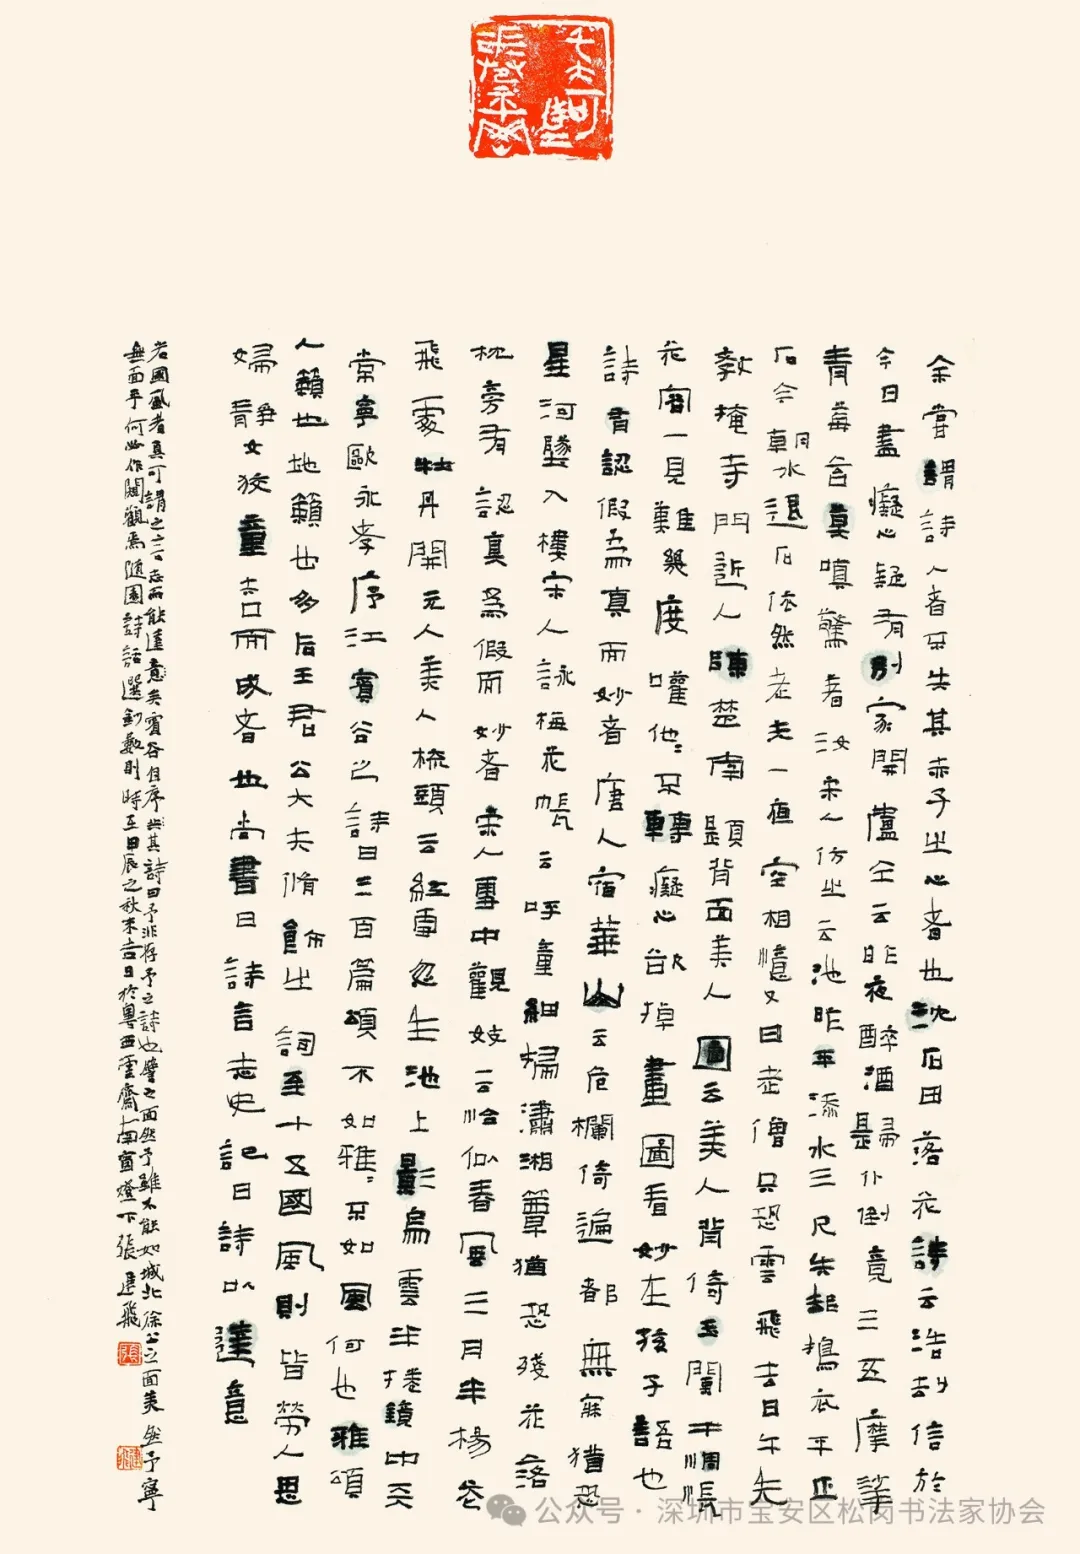 余嘗謂詩人者不失其赤子之心者也沈石田落花詩云浩劫信於
今日盡癡心疑有別家開盧仝云昨夜醉酒歸仆倒竟三五摩挲
青莓苔莫嗔驚著汝宋人仿之云池昨平添水三尺失却搗衣平正
石今朝水退石依然老夫一夜空相憶又曰老僧只恐雲飛去日午先
教掩寺門近人陳楚南題背面美人圖云美人背倚玉闌干惆悵
花容一見難幾度喚他他不轉癡心欲掉畫圖看妙在孩子語也
詩有認假為真而妙者唐人宿華山云危欄倚遍都無寐猶恐
星河墜入樓宋人詠梅花帳云呼童細掃瀟湘簟猶恐殘花落
枕旁有認真為假而妙者宋人雪中觀妓云恰似春風三月半楊花
飛處牡丹開元人美人梳頭云紅雪忽生池上影烏雲半捲鏡中天
常寧歐永孝序江賓谷之詩曰三百篇頌不如雅雅不如風何也雅頌
人籟也地籟也多后王君公大夫脩飾之詞至十五國風則皆勞人思
婦靜女狡童矢口而成者也尚書曰詩言志史記曰詩以達意
若國風者真可謂之言志而能達意矣賓谷自序其詩曰予非存予之詩也譬之面然予雖不能如城北徐公之面美然予寧
無面乎何必作闚觀焉隨園詩話選鈔數則時在甲辰之秋末吉日於粵西雲齋南窗燈下張建飛
張
公众号·深圳市宝安区松岗书法家协会